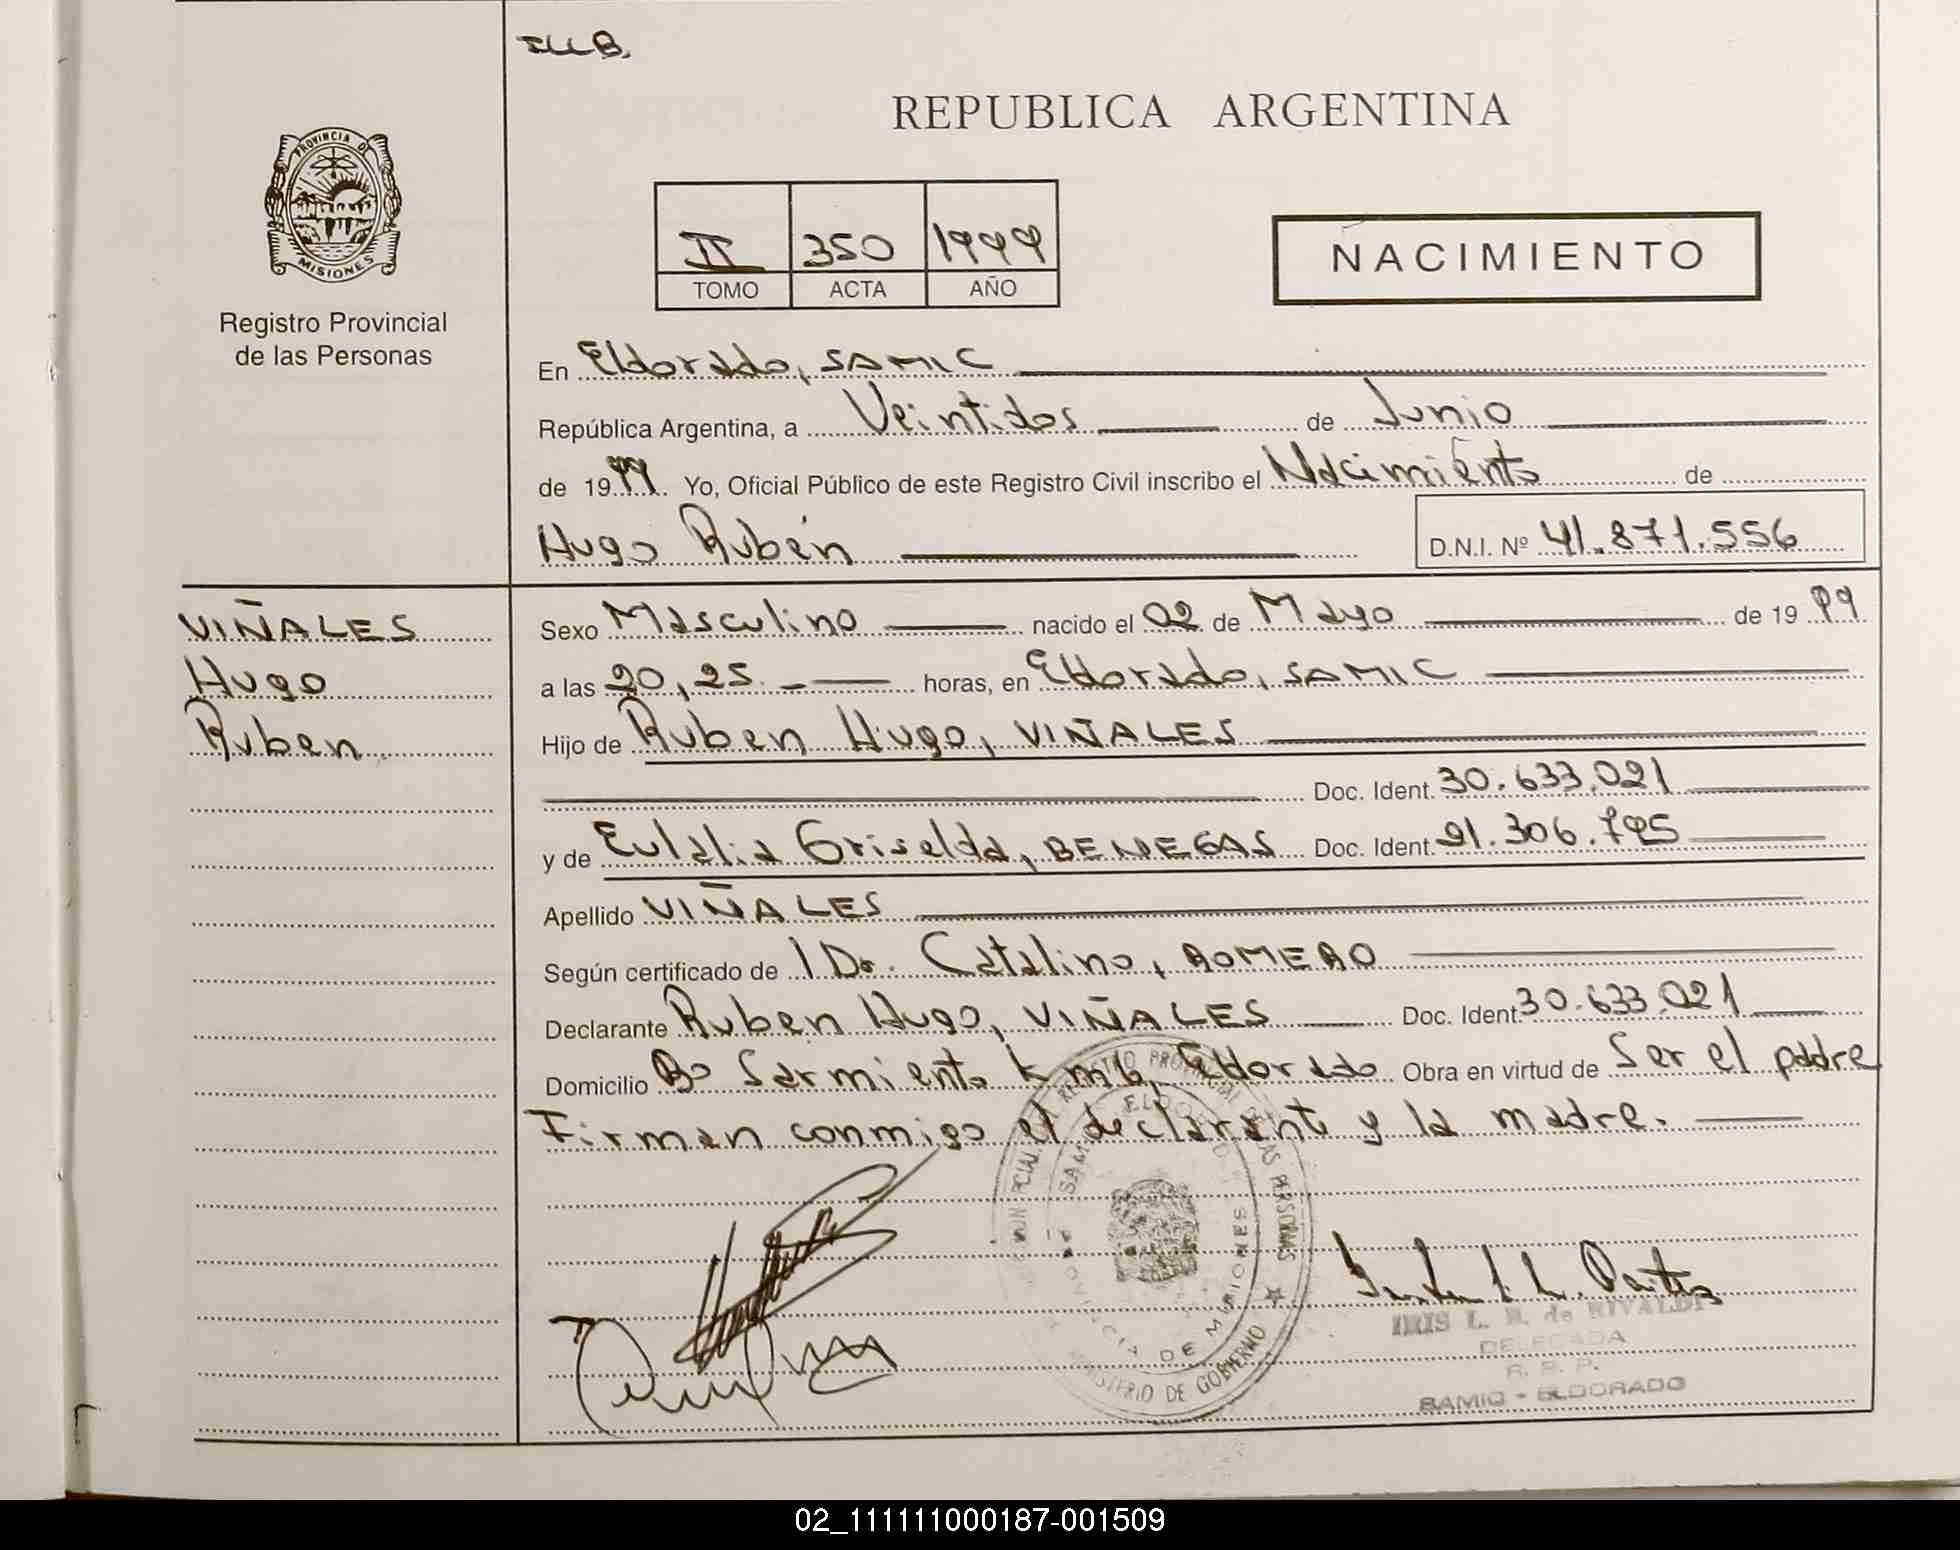 REPUBLICA ARGENTINA
PROVINCIA DE
MISIONES
Registro Provincial
de las Personas
II 350 1999
TOMO ACTA AÑO
NACIMIENTO
En Eldorado, SAMIC
República Argentina, a Veintidos de Junio
de 1999. Yo, Oficial Público de este Registro Civil inscribo el Nacimiento de
Hugo Rubén D.N.I. Nº 41.871.556
VIÑALES
Hugo
Ruben
Sexo Masculino nacido el 02 de Mayo de 1999
a las 20,25 horas, en Eldorado, SAMIC
Hijo de Ruben Hugo, VIÑALES
Doc. Ident. 30.633.021
y de Eulalia Griselda, BENEGAS Doc. Ident. 91.306.795
Apellido VIÑALES
Según certificado de 1 Dr. Catalino, ROMERO
Declarante Ruben Hugo, VIÑALES Doc. Ident. 30.633.021
Domicilio Bo Sarmiento km 6, Eldorado Obra en virtud de Ser el padre
Firman conmigo el declarante y la madre.
REGISTRO PROVINCIAL DE LAS PERSONAS
MINISTERIO DE GOBIERNO
PROVINCIA DE MISIONES
IRIS L. de RIVALDI
DELEGADA
R. P. P.
SAMIC - ELDORADO
02_111111000187-001509